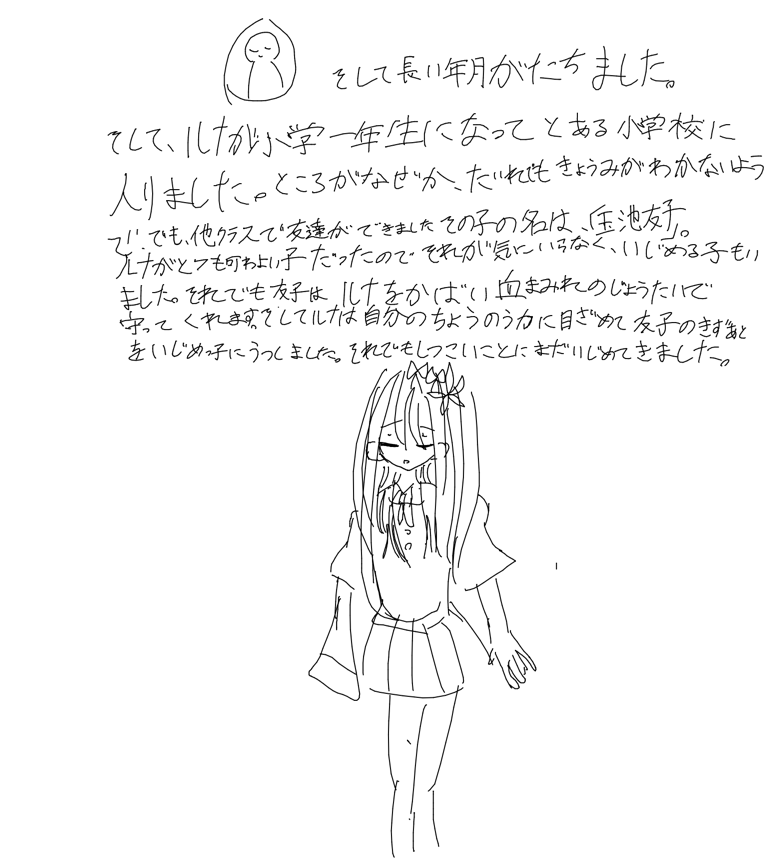 そして長い年月がたちました。
そして、ルナが小学一年生になってとある小学校に
入りました。ところがなぜか、だれでもきょうみがわかないよう
で、でも、他クラスで友達ができましたその子の名は、金池友子。
ルナがとても可わよい子だったのでそれが気にいらなく、いじめる子もい
ました。それでも友子はルナをかばい血まみれのじょうたいで
守ってくれます。そしてルナは自分のちょうのう力に目ざめて友子のきずあと
をいじめっ子にうつしました。それでもしつこいことにまだいじめてきました。